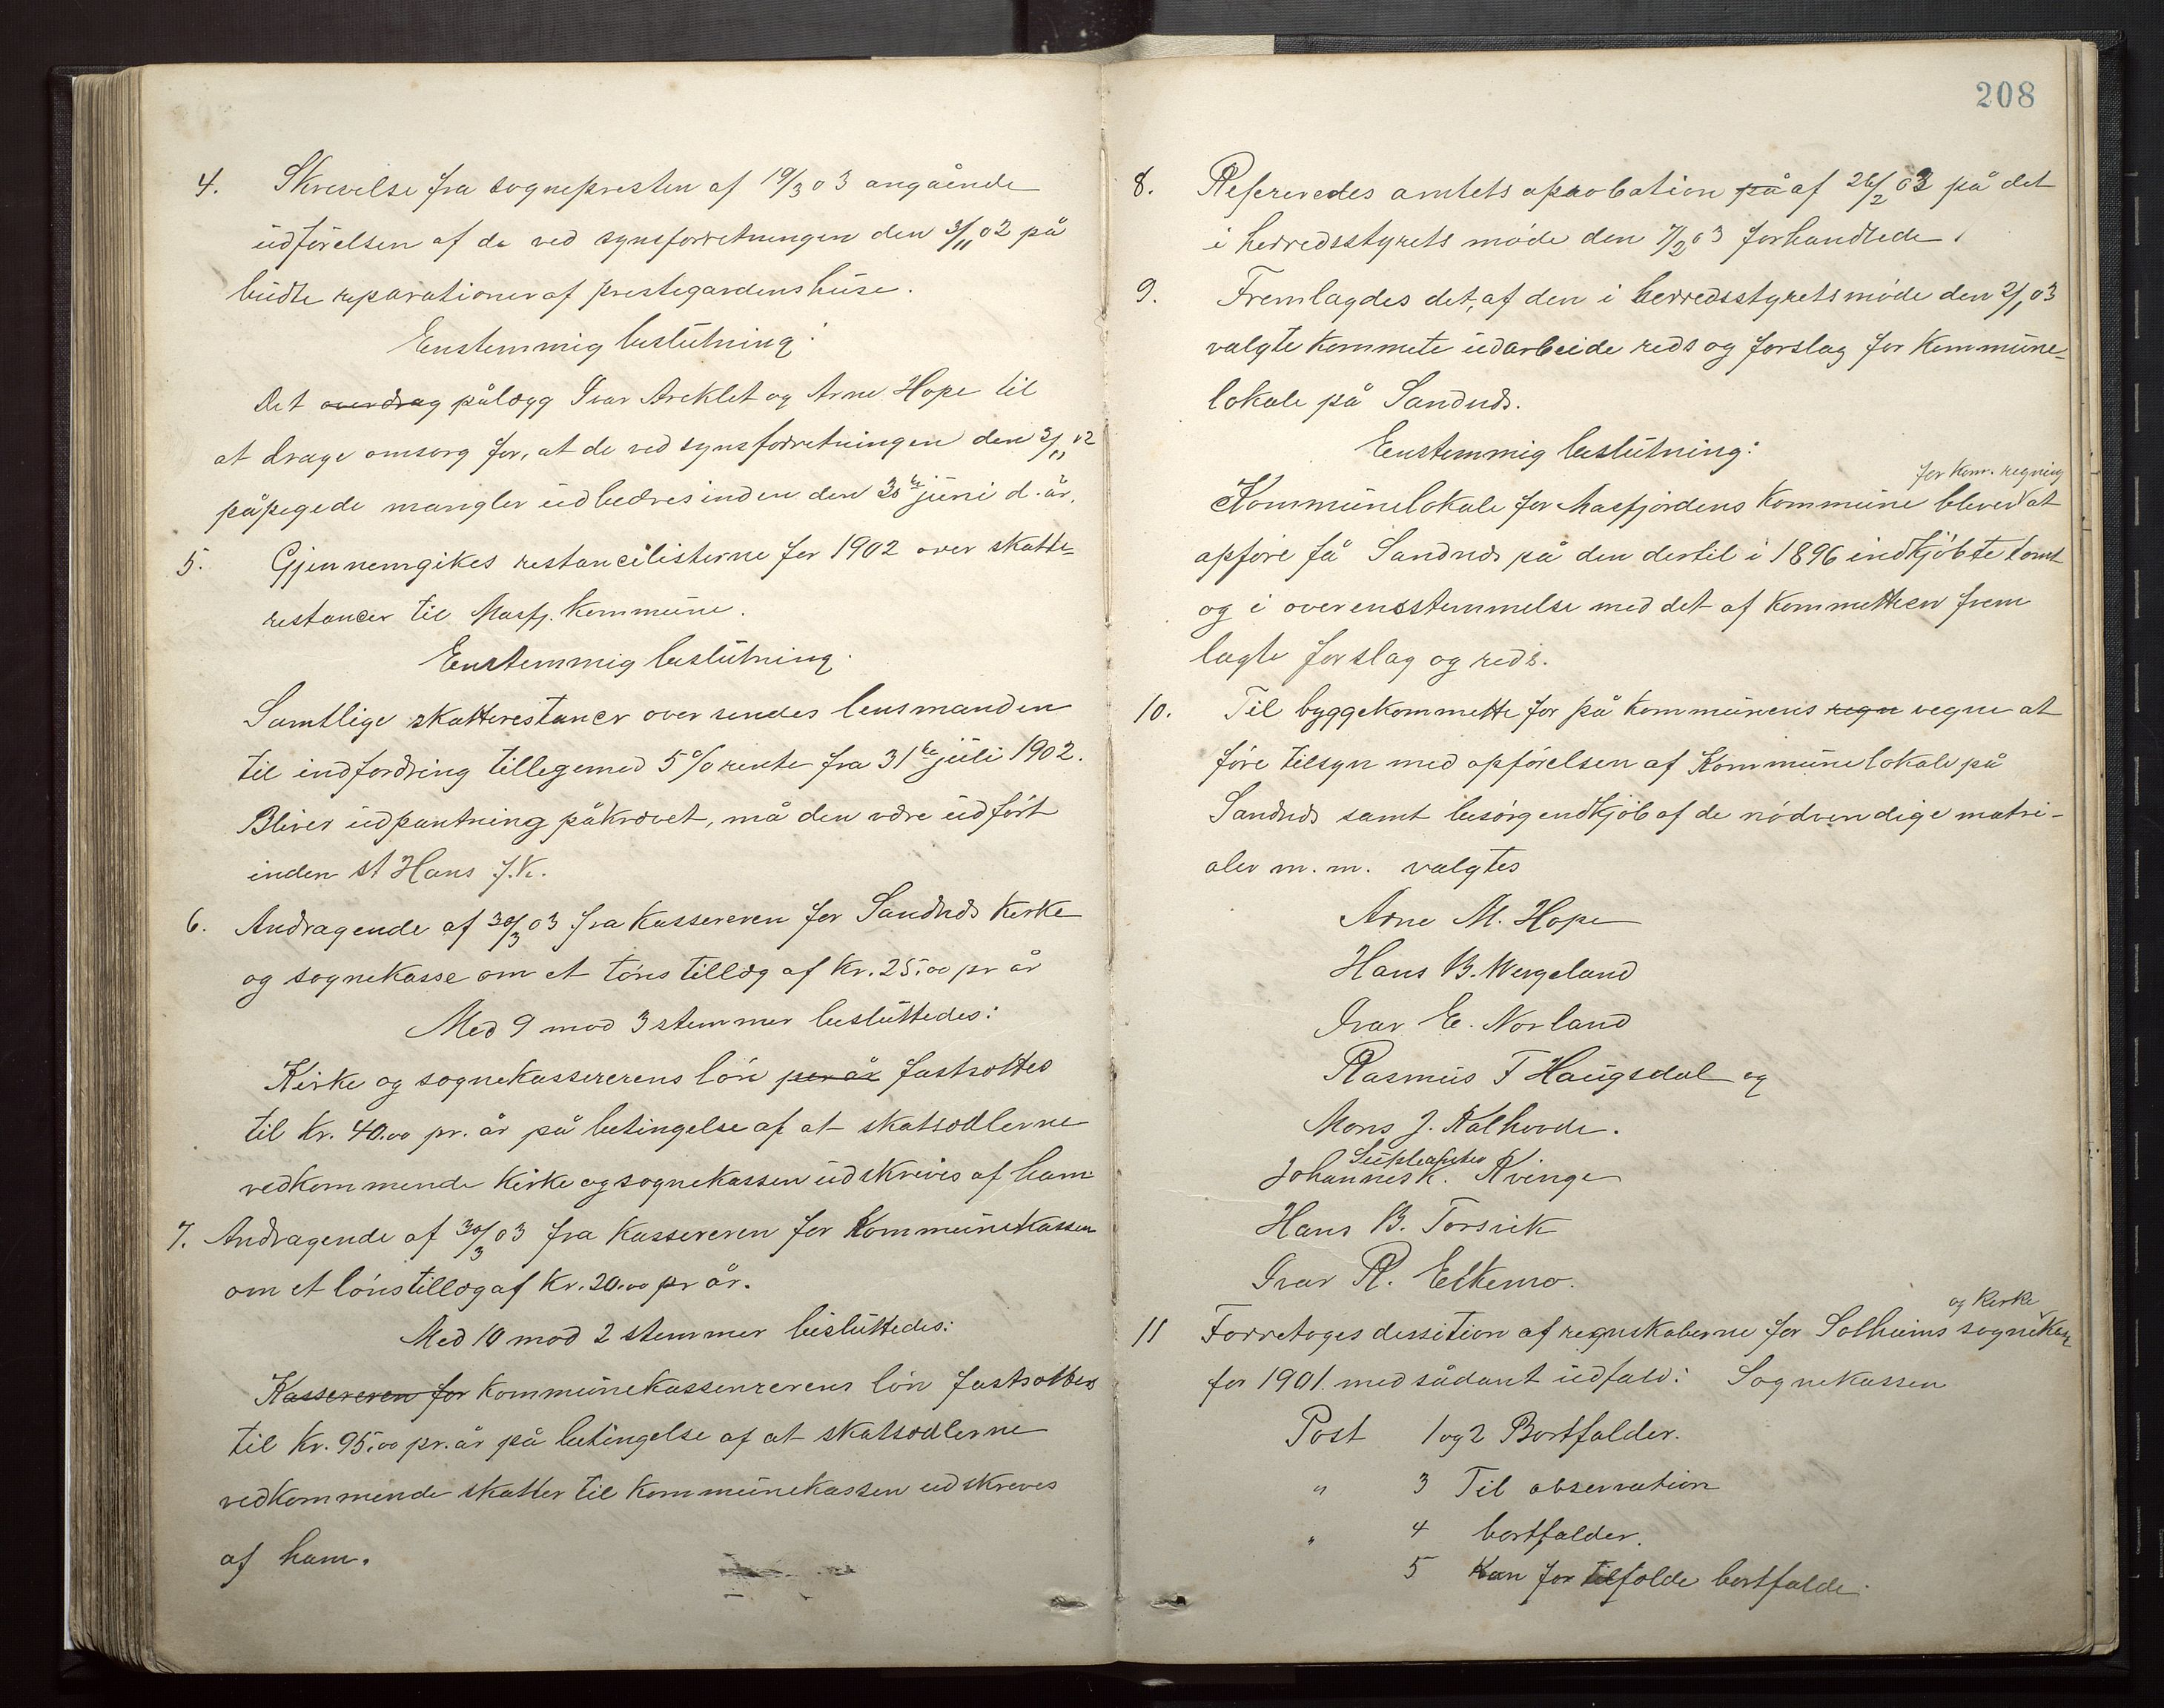 4. Skrevelse fra sognepresten af 19/3 03 angående
udførelsen af de ved synsforretningen den 3/11 02 på
budte reparationer af prestegardens huse.
Enstemmig beslutning:
Det overdrog pålægg Ivar Areklet og Arne Hope til
at drage omsorg for, at de ved synsforretningen den 3/11 02
påpegede mangler udbedres inden den 30te juni d. år.
5. Gjennemgikes restancelisterne for 1902 over skatte-
restancer til Masfj. Kommune.
Enstemmig beslutning.
Samtlige skatterestancer oversendes lensmanden
til indfordring tillegemed 5% rente fra 31te juli 1902.
Bliver udpantning påkrævet, må den være udført
inden St Hans f.k.
6. Andragende af 30/3 03 fra Kassereren for Sandnds Kirke
og sognekasse om et løns tillæg af Kr. 25.00 pr år
Med 9 mod 3 stemmer besluttedes:
Kirke og sognekassererens løn per år fastsættes
til Kr. 40.00 pr. år på betingelse af at skatsedlerne
vedkommende Kirke og sognekassen udskrives af ham.
7. Andragende af 30/3 03 fra Kassereren for Kommunekassen
om et lønstillæg af Kr. 20.00 pr år.
Med 10 mod 2 stemmer besluttedes:
Kassereren for Kommunekassenrerens løn fastsættes
til Kr. 95.00 pr. år på betingelse af at skatsedlerne
vedkommende skatter til Kommunekassen udskreves
af ham.
208
8. Refereredes amtets aprobation på af 26/2 03 på det
i herredsstyrets møde den 7/2 03 forhandlede.
9. Fremlagdes det, af den i herredsstyrets møde den 2/1 03
valgte Kommete udarbeide reds og forslag for Kommune-
lokale på Sandnds.
Enstemmig beslutning:
for Kom. regning
Kommunelokale for Masfjordens Kommune blever at
opføre få Sandnds på den dertil i 1896 indkjøbte tomt
og i overensstemmelse med det af Kommetteen frem
lagte forslag og reds.
10. Til byggekommette for på Kommunens regn vegne at
føre tilsyn med opførelsen af Kommunelokale på
Sandnds samt besørg endkjøb af de nødvendige matri-
aler m. m. valgtes
Arne M. Hope
Hans B. Wergeland
Ivar E. Norland
Rasmus T Haugsdal og
Mons J. Kalhovde.
Supleanter
Johannes K. Kvinge
Hans B. Torsvik
Ivar R. Eikemo.
og Kirke
11 Forretoges dessition af regnskaberne for Solheims sognekasse
for 1901. med sådant udfald: Sognekassen
Post 1 og 2 Bortfalder.
" 3 Til observation
" 4 bortfalder.
5 Kan for tilfælde bortfalde.